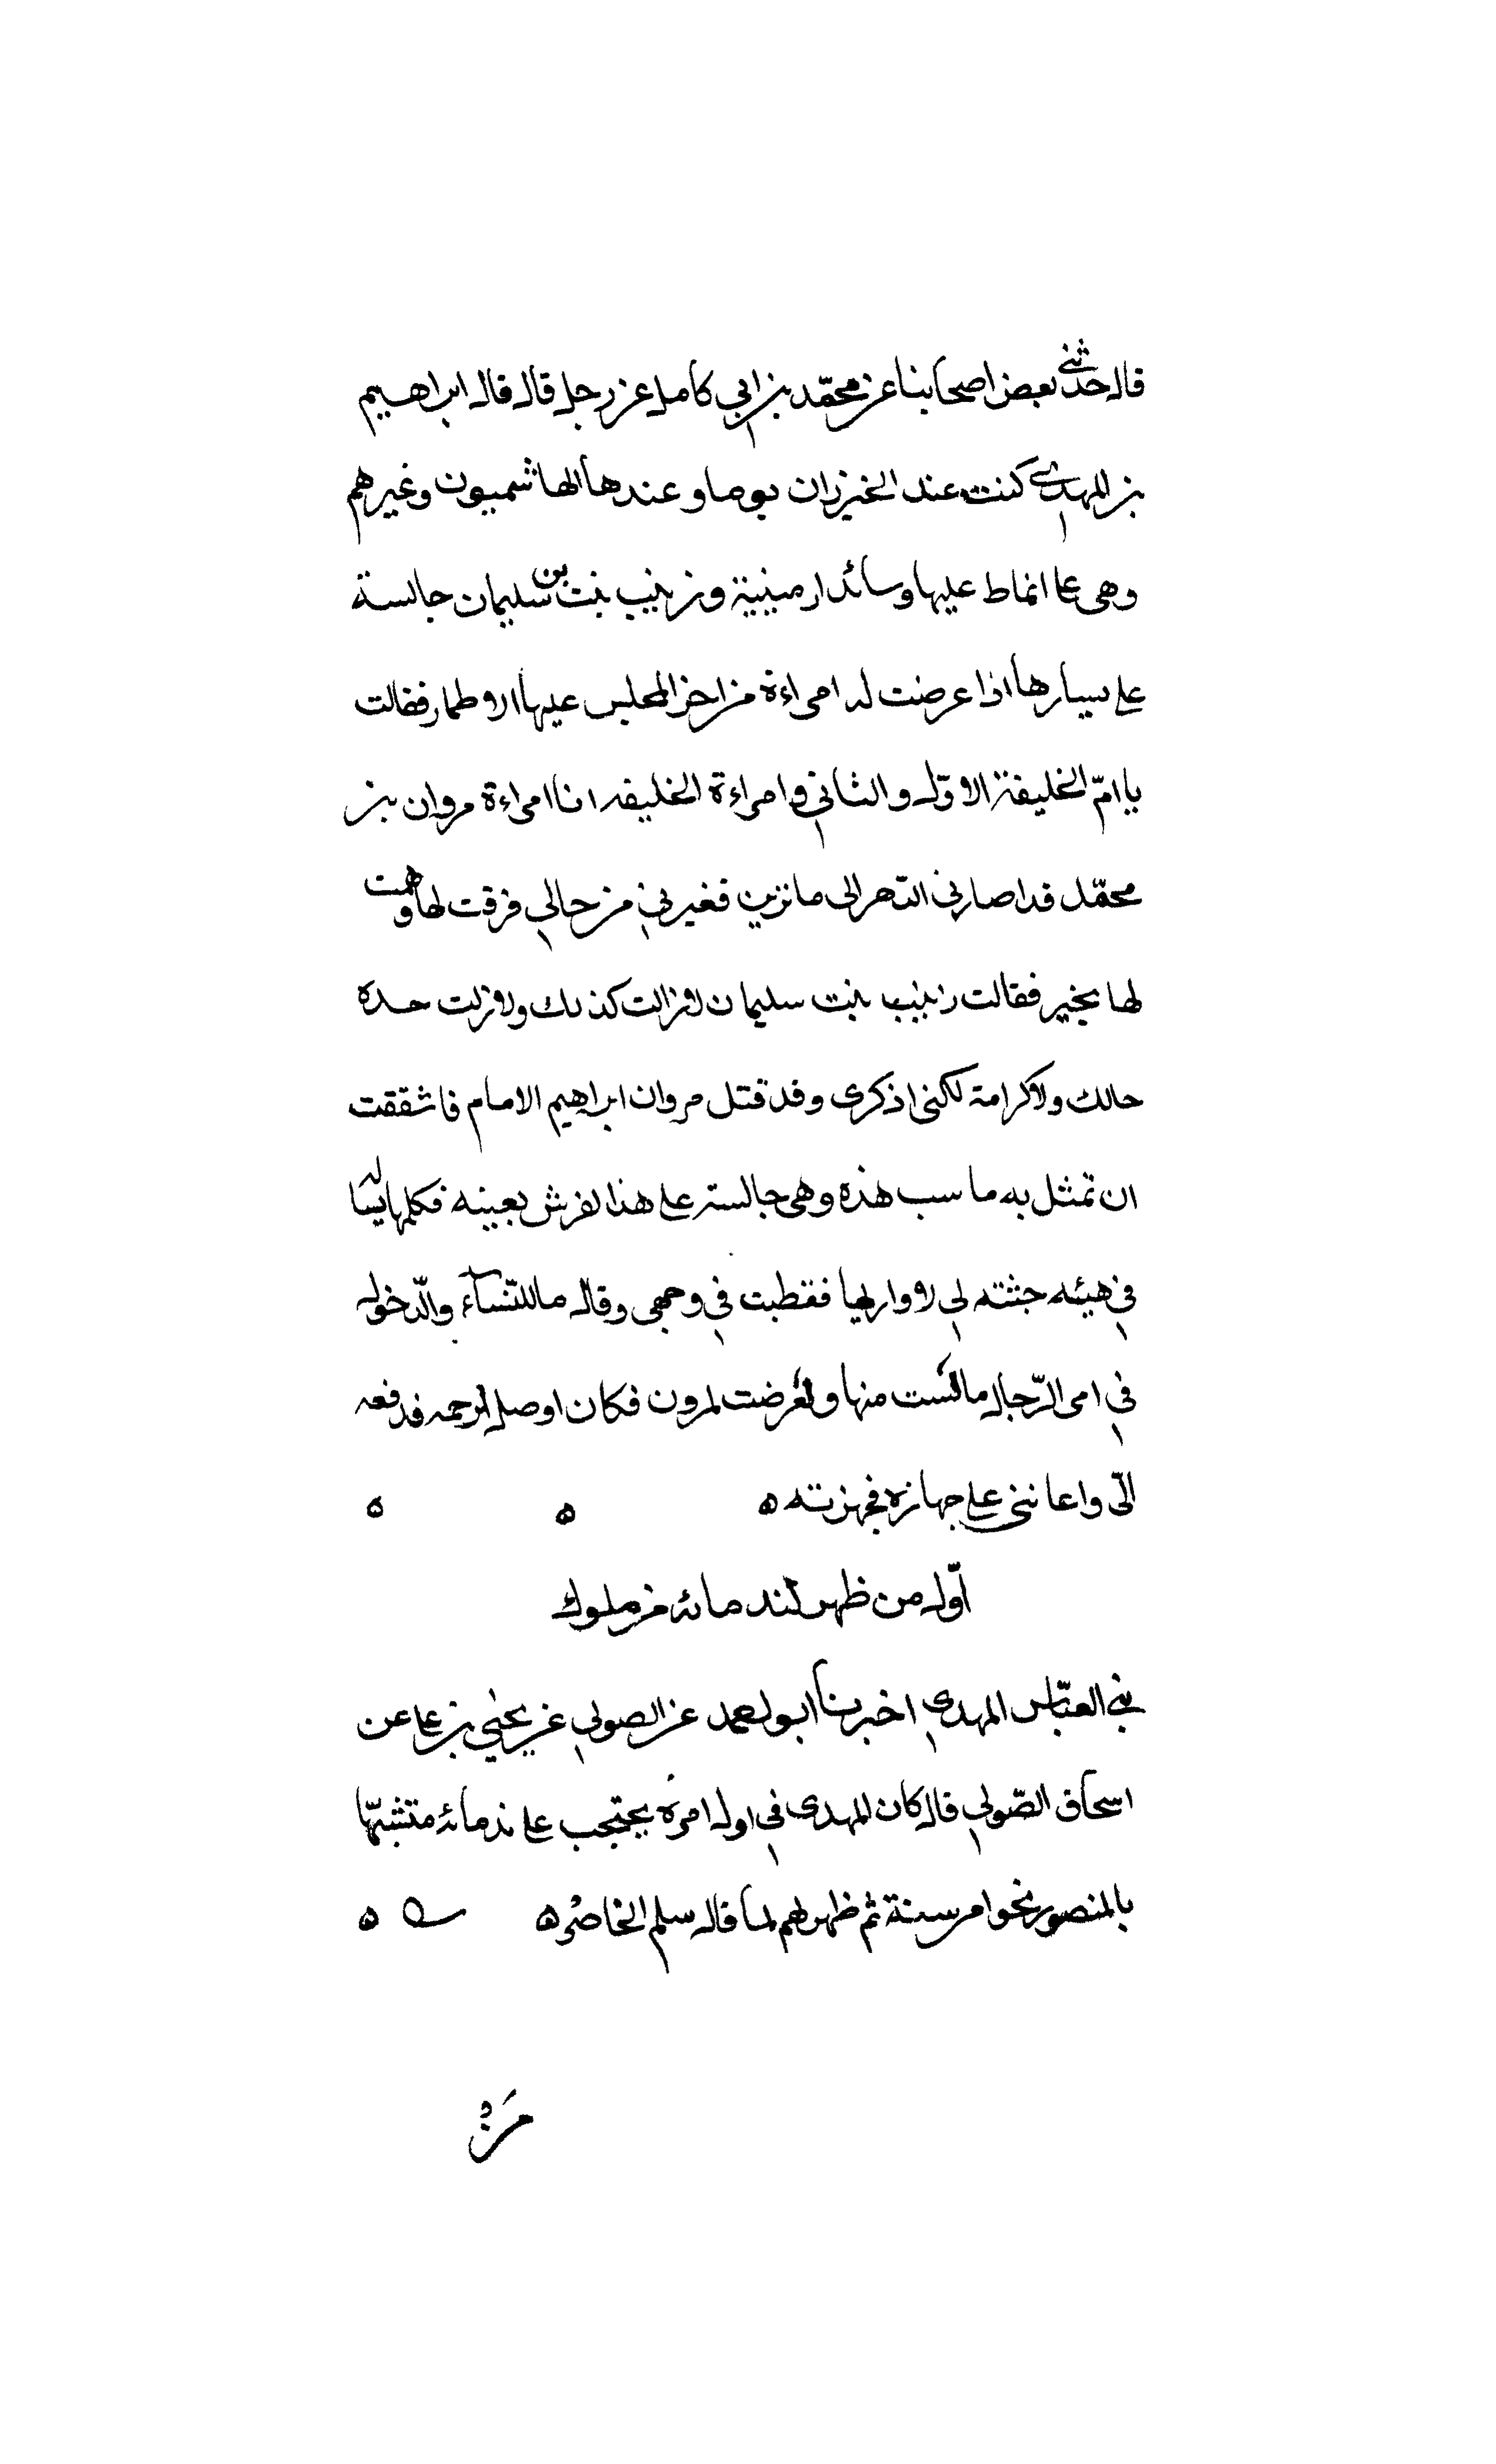 قال حدثني بعض اصحابنا عن محمّد بن ابي كامل عن رجل قال قال ابراهيم
بن المهدي كنت عند الخيزران يوما وعندها الهاشميون وغيرهم
وهي على انماط عليها وسائد ارمينية وزينب بنت بن سليمان جالسة
على يسارها اذا عرضت له امراءة من اخر المجلس عليها الاطمار فقالت
يا امّ الخليفة الاوّل والثاني وامراءة الخليفه انا امراءة مروان بن
محمّد قد اصارني الدّهر الى ما ترين فغيرني من حالي فرقت لها وهمت
لها بخير فقالت زينب بنت سليمان لا زالت كذلك ولا زلت حده
حالك ولا كرامة لكني اذكرى وقد قتل مروان ابراهيم الامام فاشققت
ان تمثل به ما سب هذه وهي جالسة على هذا لفرش بعينه فكلمها
في هيئه جثته لي لاواريها فقطبت في وجهي وقال ما للنّساء والّدخول
في امر الرّجال منها ولعرضت لمرون فكان اوصل لرحمه فدفعه
الّى واعانني على جهازه فجهزته ه ه ه
اوّل من ظهر لندمائه من ملوك
بني العبّاس المهدي اخبرنا ابو احمد عن الصولي عن يحيى بن على عن
اسحاق الصّولي قال كان المهدى في اول امره يحتجب على ندمائه متشبهّا
بالمنصور نحوا من سنة ثم ظهر لهم لما قال سلم الخاسر ه ه
مَنْ